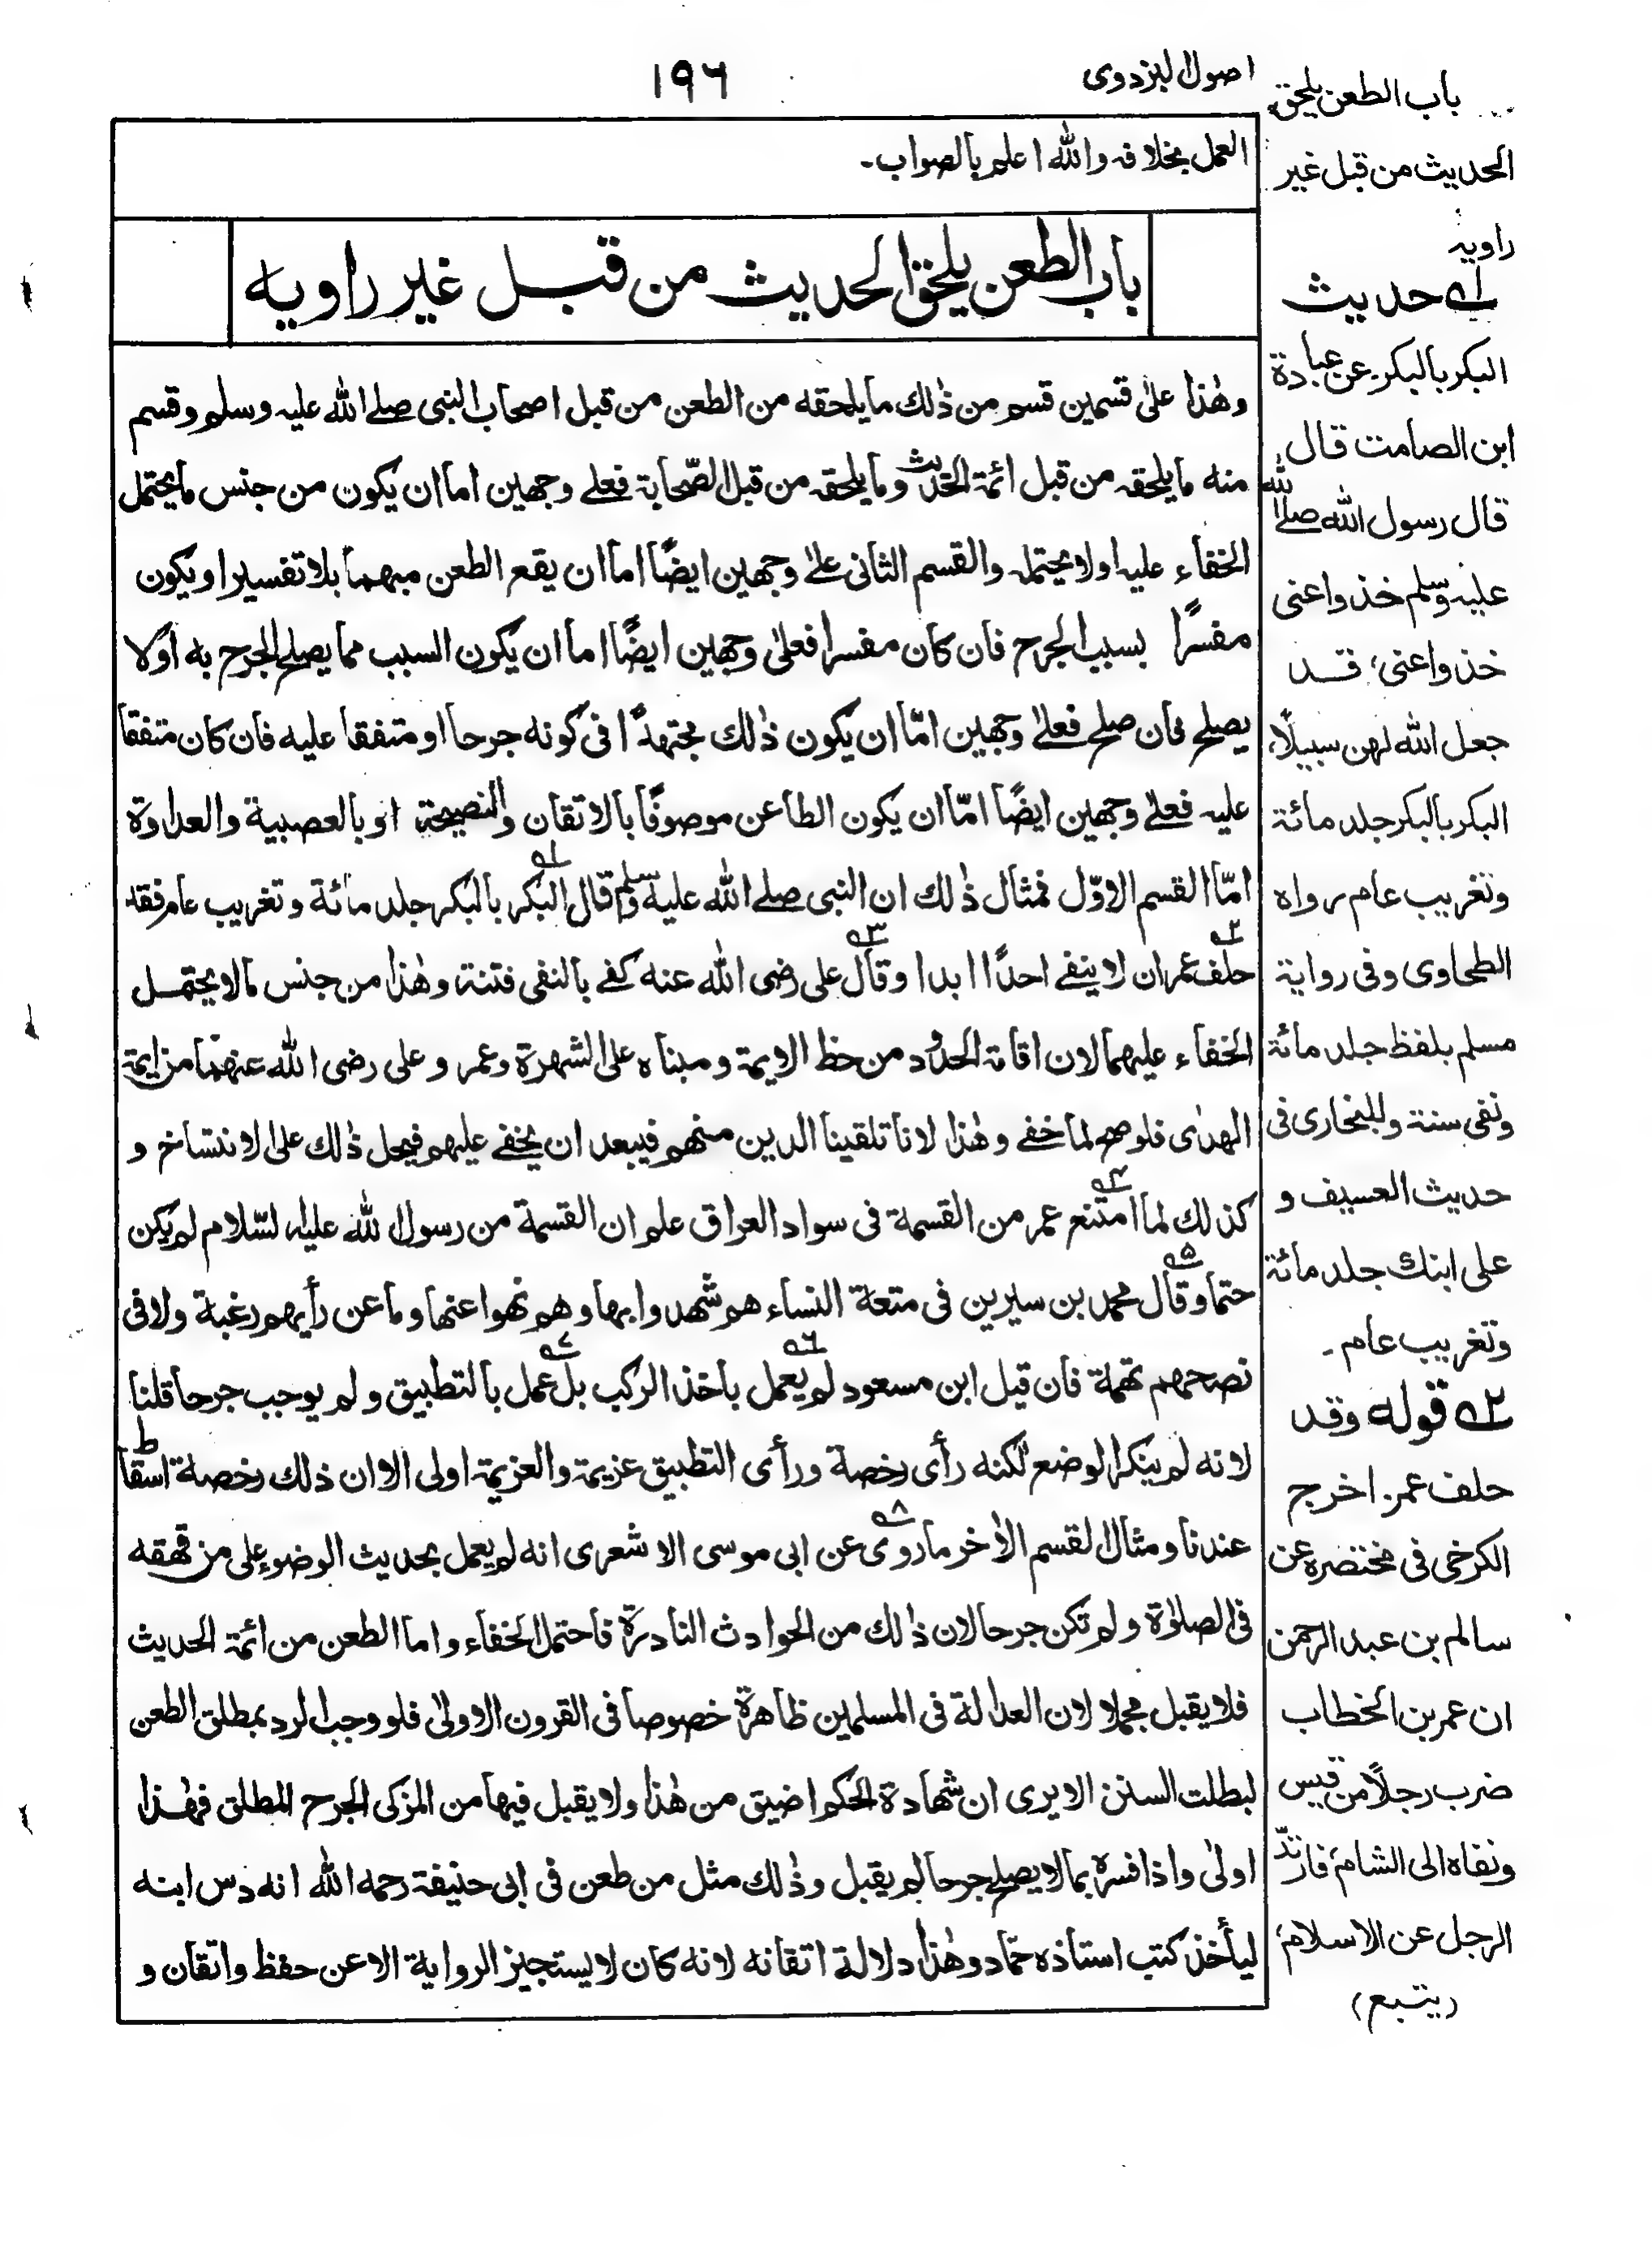 اصول البزدوی
١٩٦
العمل بخلافه والله اعلم بالصواب۔
باب الطعن يلحق الحديث من قبل غير راويه
وهٰذا علٰى قسمين قسم من ذٰلك ما يلحقه من الطعن من قبل اصحاب النبى صلے الله عليه وسلم وقسم
منه ما يلحقه من قبل ائمة الحديث وما يلحقه من قبل الصّحابة فعلے وجهين اما ان يكون من جنس ما يحتمل
الخفاء عليه اولا يحتمله والقسم الثانى علے وجهين ايضًا اما ان يقع الطعن مبهما بلا تفسير او يكون
مفسرًا بسبب الجرح فان كان مفسرا فعلٰى وجهين ايضًا اما ان يكون السبب مما يصلح الجرح به اولا
يصلح فان صلح فعلے وجهين امّا ان يكون ذٰلك مجتهدًا فى كونه جرحا او متفقا عليه فان كان متفقا
عليه فعلے وجهين ايضًا امّا ان يكون الطاعن موصوفًا بالاتقان والنصيحة او بالعصبية والعداوة
امّا القسم الاوّل فمثال ذٰلك ان النبى صلے الله عليه وسلم قال البكر بالبكر جلد مائة وتغريب عام فقد
حلف عمر ان لا ينفے احدًا ابدا وقال على رضى الله عنه كفے بالنفى فتنة وهٰذا من جنس مالا يحتمل
الخفاء عليهما لان اقامة الحدود من حظ الايمة ومبناه على الشهرة وعمر وعلى رضى الله عنهما من ايمة
الهدٰى فلو صح لما خفے وهٰذا لانا تلقينا الدين منهم فيبعد ان يخفے عليهم فيحل ذٰلك على الانتساخ و
كذلك لما امتنع عمر من القسمة فى سواد العراق علم ان القسمة من رسول الله عليه السّلام لم يكن
حتما وقال محمد بن سيرين فى متعة النساء هم شهدوا بها وهم نهوا عنها وما عن رأيهم رغبة ولا فى
نصحهم تهمة فان قيل ابن مسعود لم يعمل باخذ الركب بل عمل بالتطبيق ولم يوجب جرحا قلنا
لانه لم ينكر الوضع لكنه رأى رخصة ورأى التطبيق عزيمة والعزيمة اولى الا ان ذلك رخصة اسقاط
عندنا ومثال القسم الاٰخر ما روى عن ابى موسى الاشعرى انه لم يعمل بحديث الوضوء على من قهقه
فى الصلوٰة ولم تكن جرحا لان ذٰلك من الحوادث النادرة فاحتمل الخفاء واما الطعن من ائمة الحديث
فلا يقبل مجملا لان العدالة فى المسلمين ظاهرة خصوصا فى القرون الاولى فلو وجب الرد بمطلق الطعن
لبطلت السنن الا يرى ان شهادة الحكم اضيق من هٰذا ولا يقبل فيها من المزكى الجرح المطلق فهٰذا
اولٰى واذا فسره بما لا يصلح جرحا لم يقبل وذٰلك مثل من طعن فى ابى حنيفة رحمه الله انه دس ابنه
ليأخذ كتب استاذه حمّاد وهٰذا دلالة اتقانه لانه كان لا يستجيز الرواية الا عن حفظ واتقان و
باب الطعن يلحق
الحديث من قبل غير
راويه
١ے حديث
البكر بالبكر۔ عن عبادة
ابن الصامت قال
قال رسول الله صلے الله
عليه وسلم خذوا عنى
خذوا عنى، قد
جعل الله لهن سبيلًا،
البكر بالبكر جلد مائة
وتغريب عام رواه
الطحاوى وفى رواية
مسلم بلفظ جلد مائة
ونفى سنة وللبخارى فى
حديث العسيف و
على ابنك جلد مائة
وتغريب عام۔
٢ے قوله وقد
حلف عمر۔ اخرج
الكرخى فى مختصره عن
سالم بن عبد الرحمن
ان عمر بن الخطاب
ضرب رجلًا من قيس
ونفاه الى الشام، فارتدّ
الرجل عن الاسلام،
(يتبع)